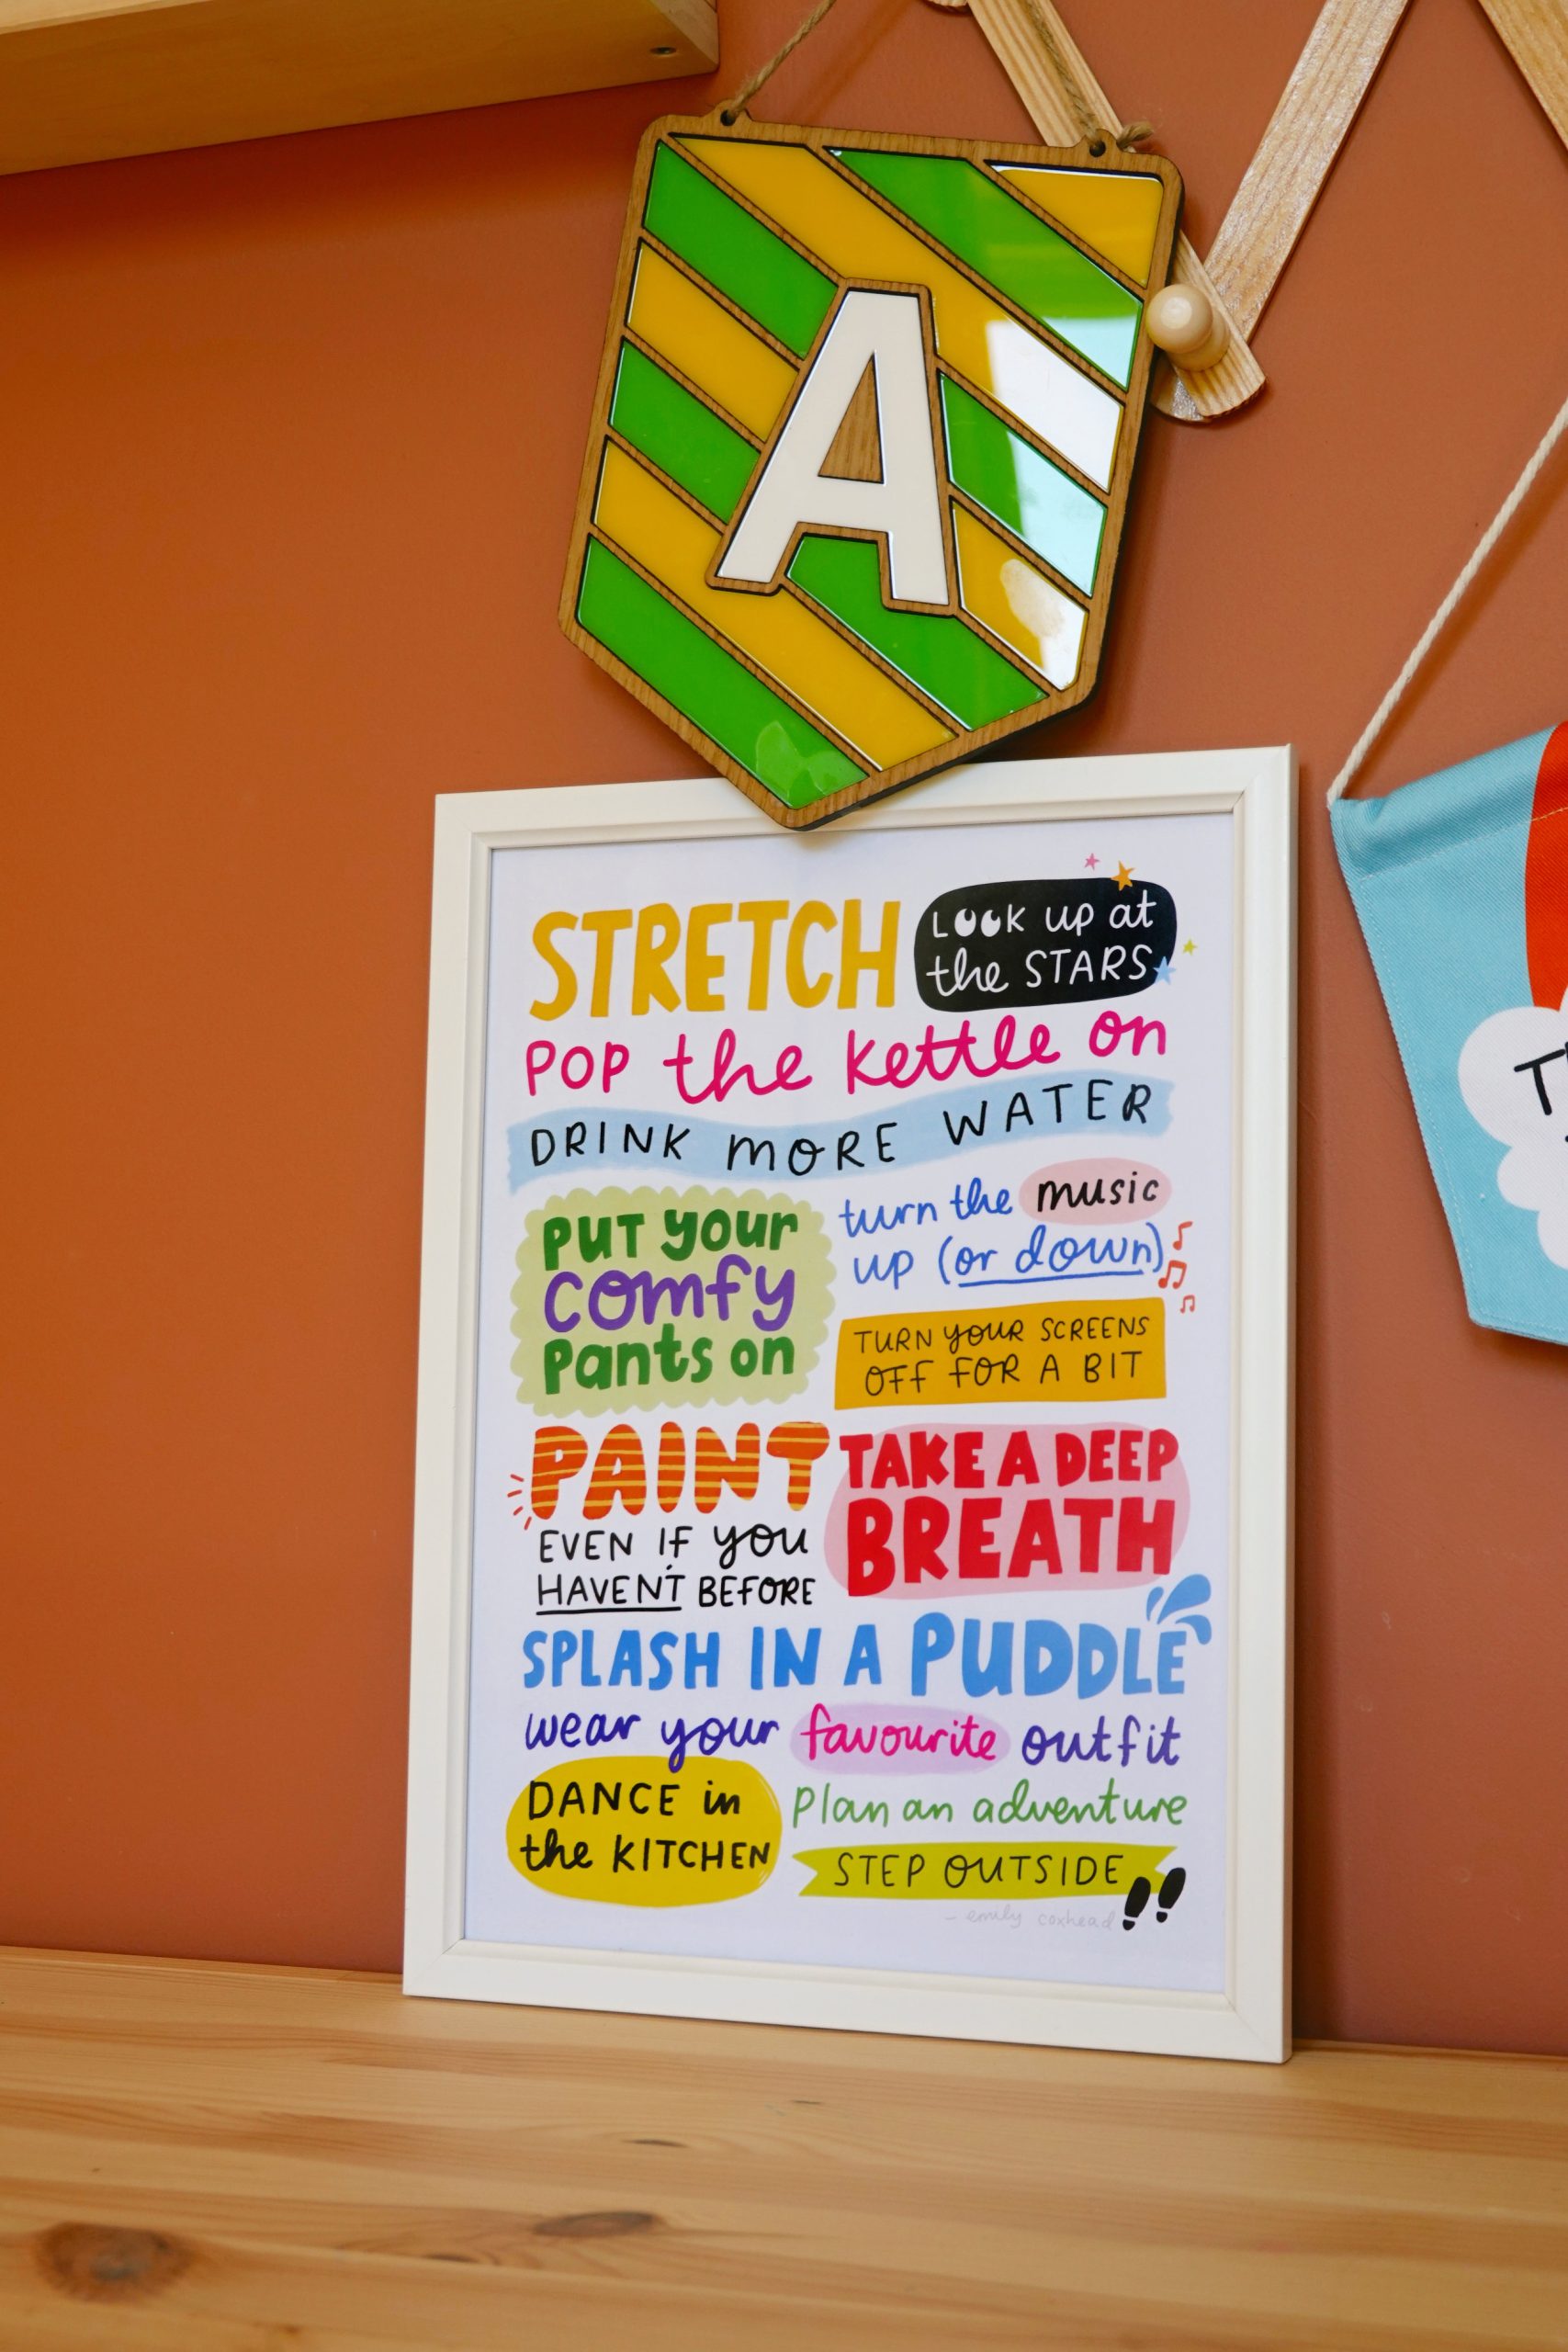 A
STRETCH
LOOK up at
the STARS
POP the kettle on
DRINK MORE WATER
PUT your
comfy
pants on
turn the music
up (or down)
TURN your SCREENS
OFF FOR A BIT
PAINT
EVEN IF you
HAVEN'T BEFORE
TAKE A DEEP
BREATH
SPLASH IN A PUDDLE
wear your favourite outfit
DANCE in
the KITCHEN
plan an adventure
STEP OUTSIDE
- emily coxhead